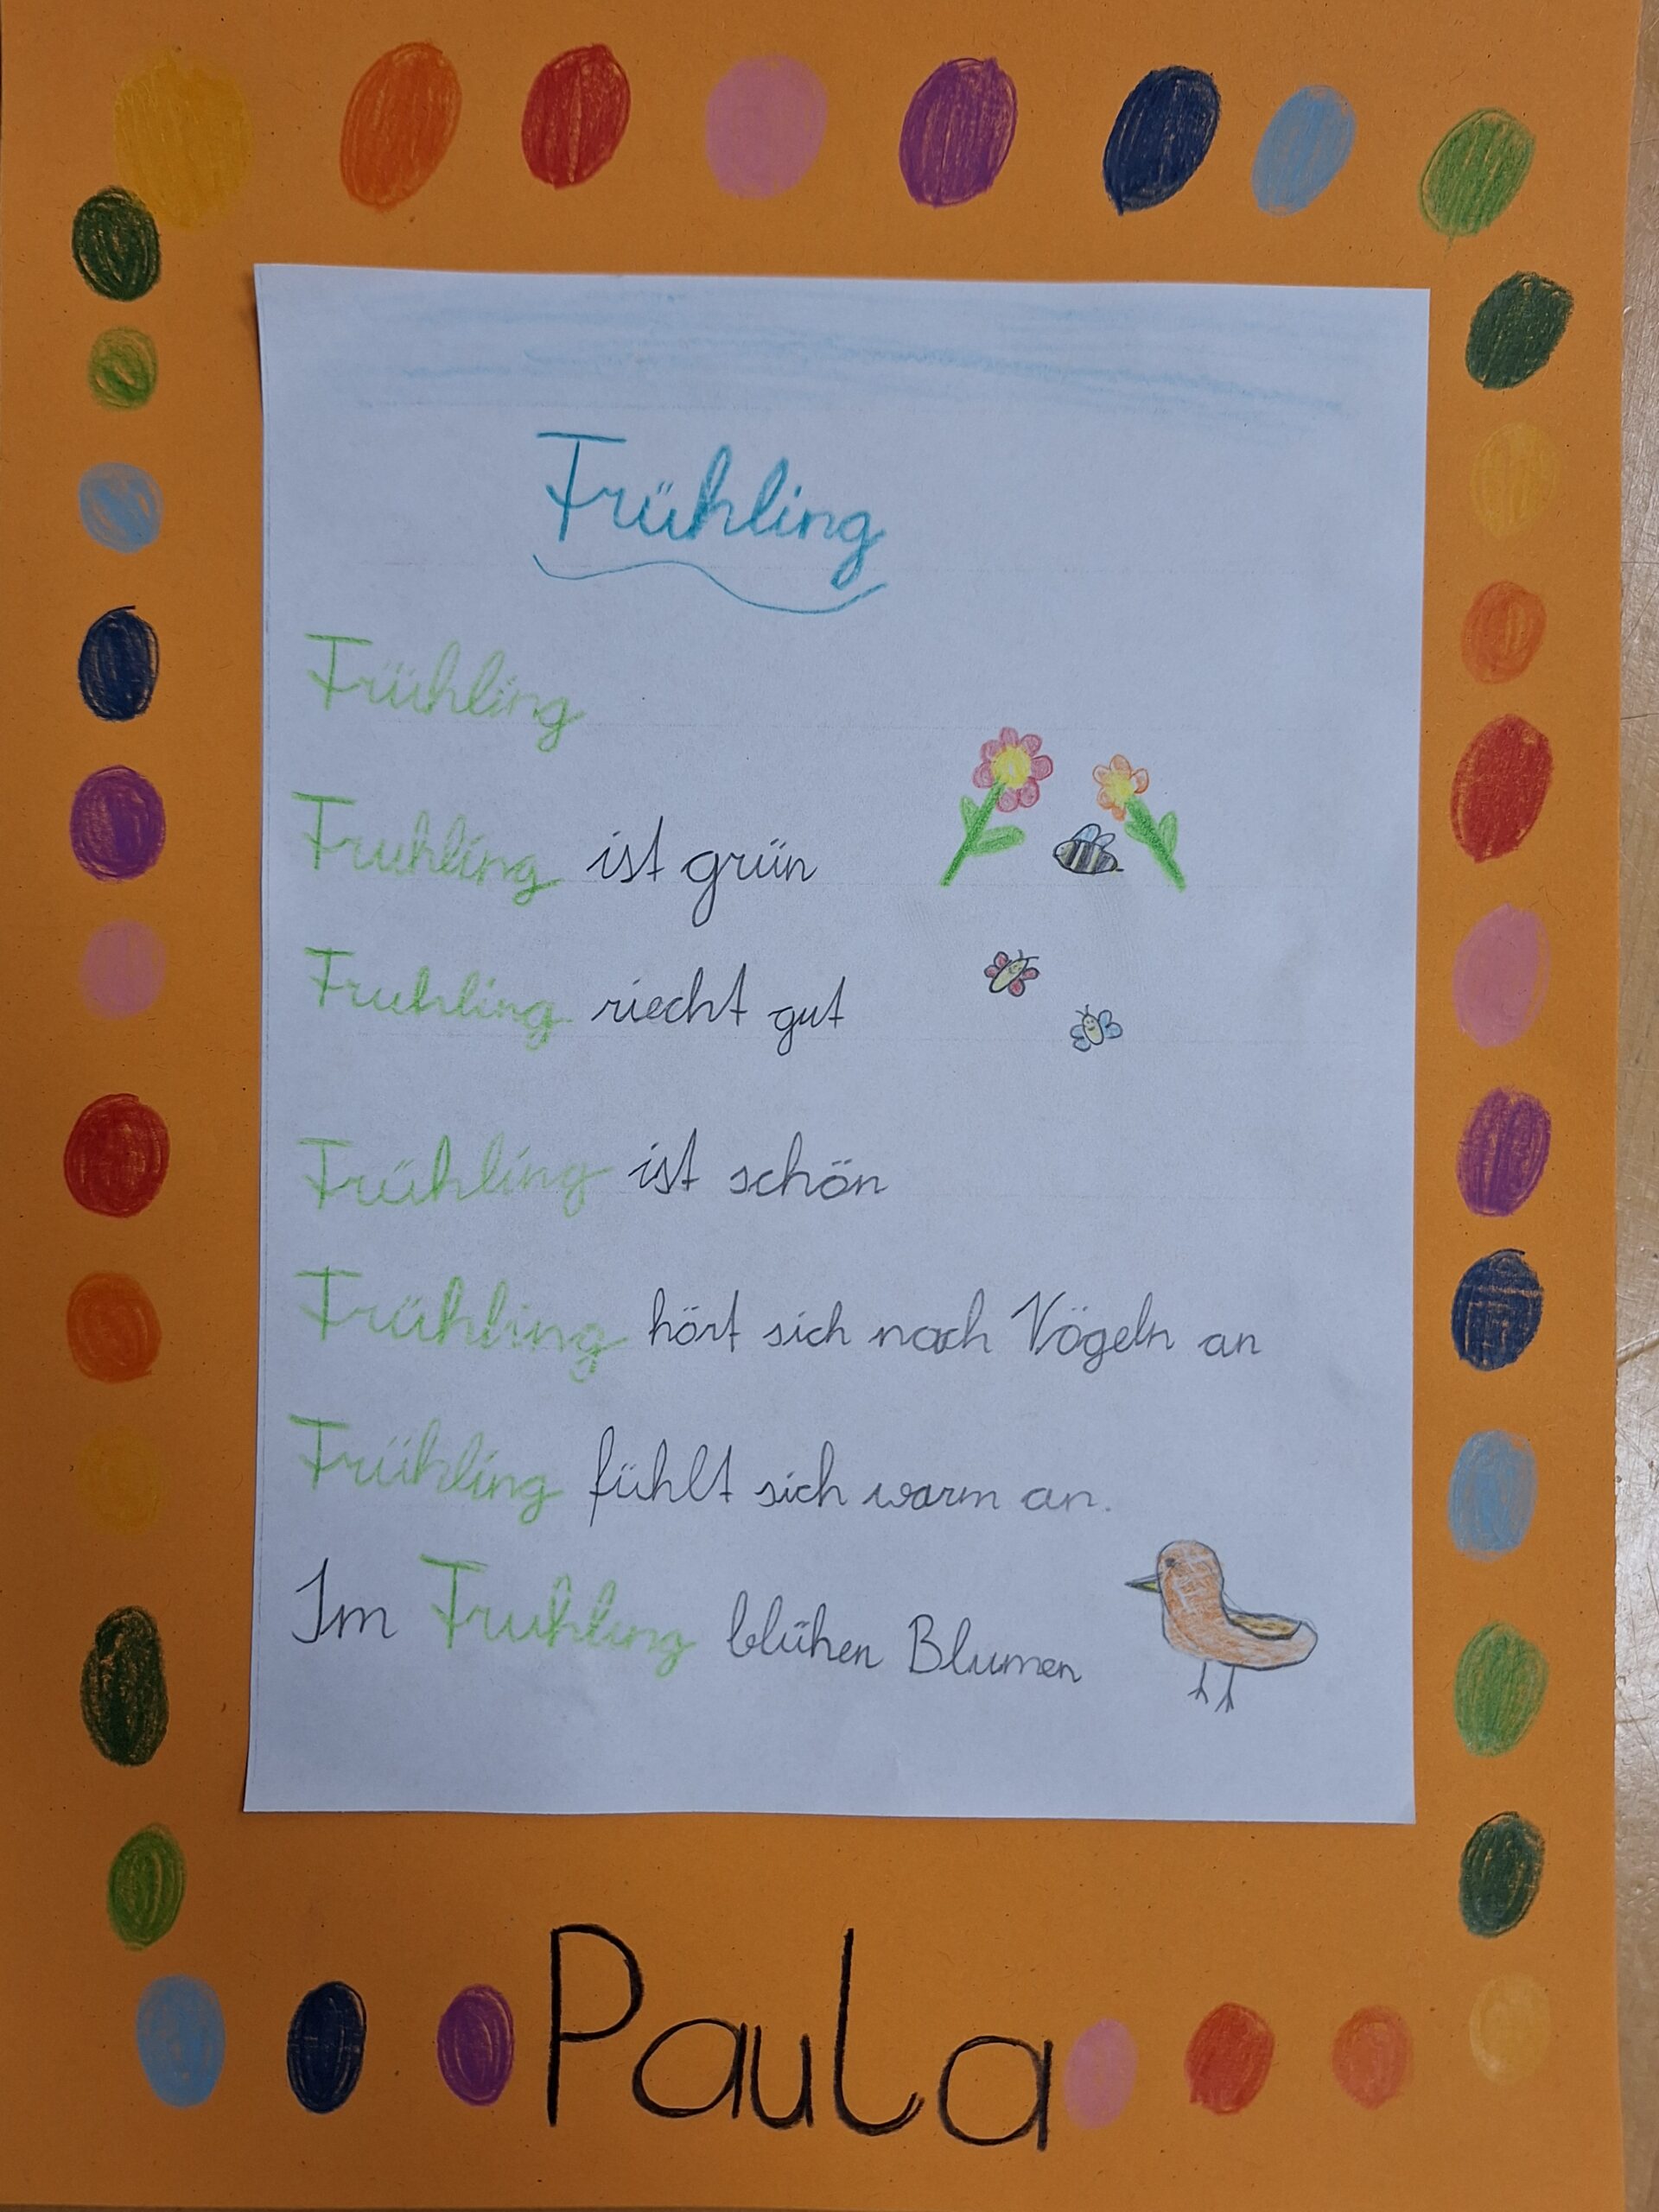 Frühling
Frühling
Fruhling ist grün
Fruhling riecht gut
Frühling ist schön
Frühling hört sich nach Vögeln an
Frühling fühlt sich warm an.
Im Fruhling blühen Blumen
Paula